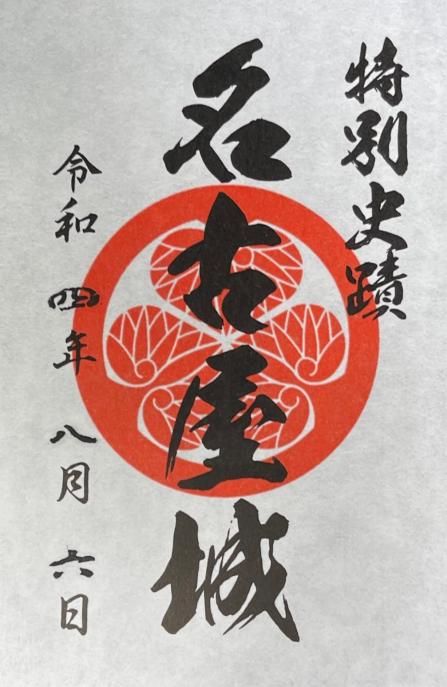 特別史蹟
名古屋城
令和 四年 八月 六日